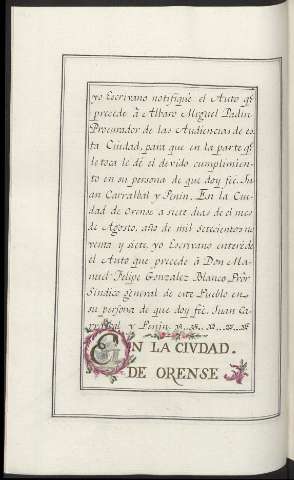 yo Escrivano notifiqúe el Auto qe
precede à Alvaro Miguel Padin
Procurador de las Audiencias de es
ta Ciudad, para que en la parte qe
le toca le dè el devido cumplimien
to en su persona de que doy feè. Ju
an Carrabal y Penin. En la Ciu
dad de Orense a siete dias de el mes
de Agosto, año de mil Setecientos no
venta y siete, yo Escrivano enterè de
el Auto que precede à Don Ma
nuel Felipe Gonzalez Blanco Pròr
Sindico general de este Pueblo en
su persona de que doy feè. Juan Ca
rrabal y Penin
EN LA CIVDAD.
DE ORENSE